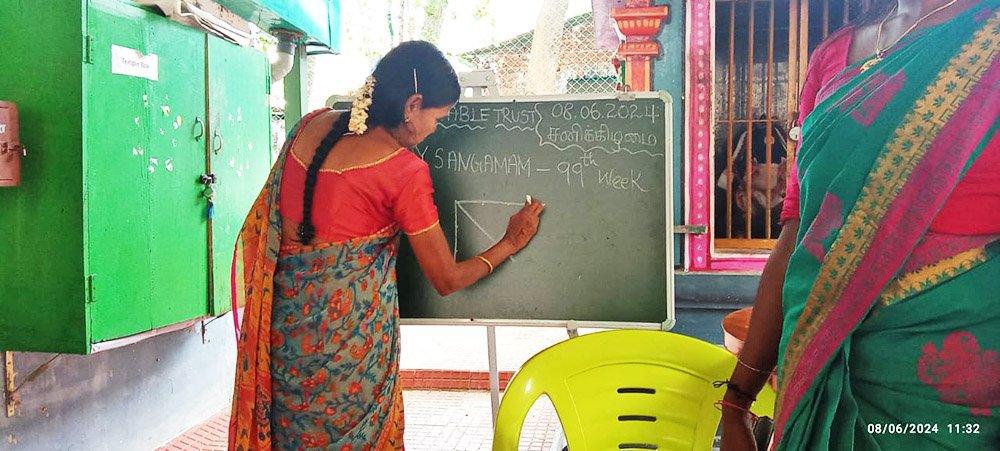 Temple Box
ABLE TRUST
08.06.2024
சனிக்கிழமை
Y SANGAMAM - 99th Week
08/06/2024 11:32